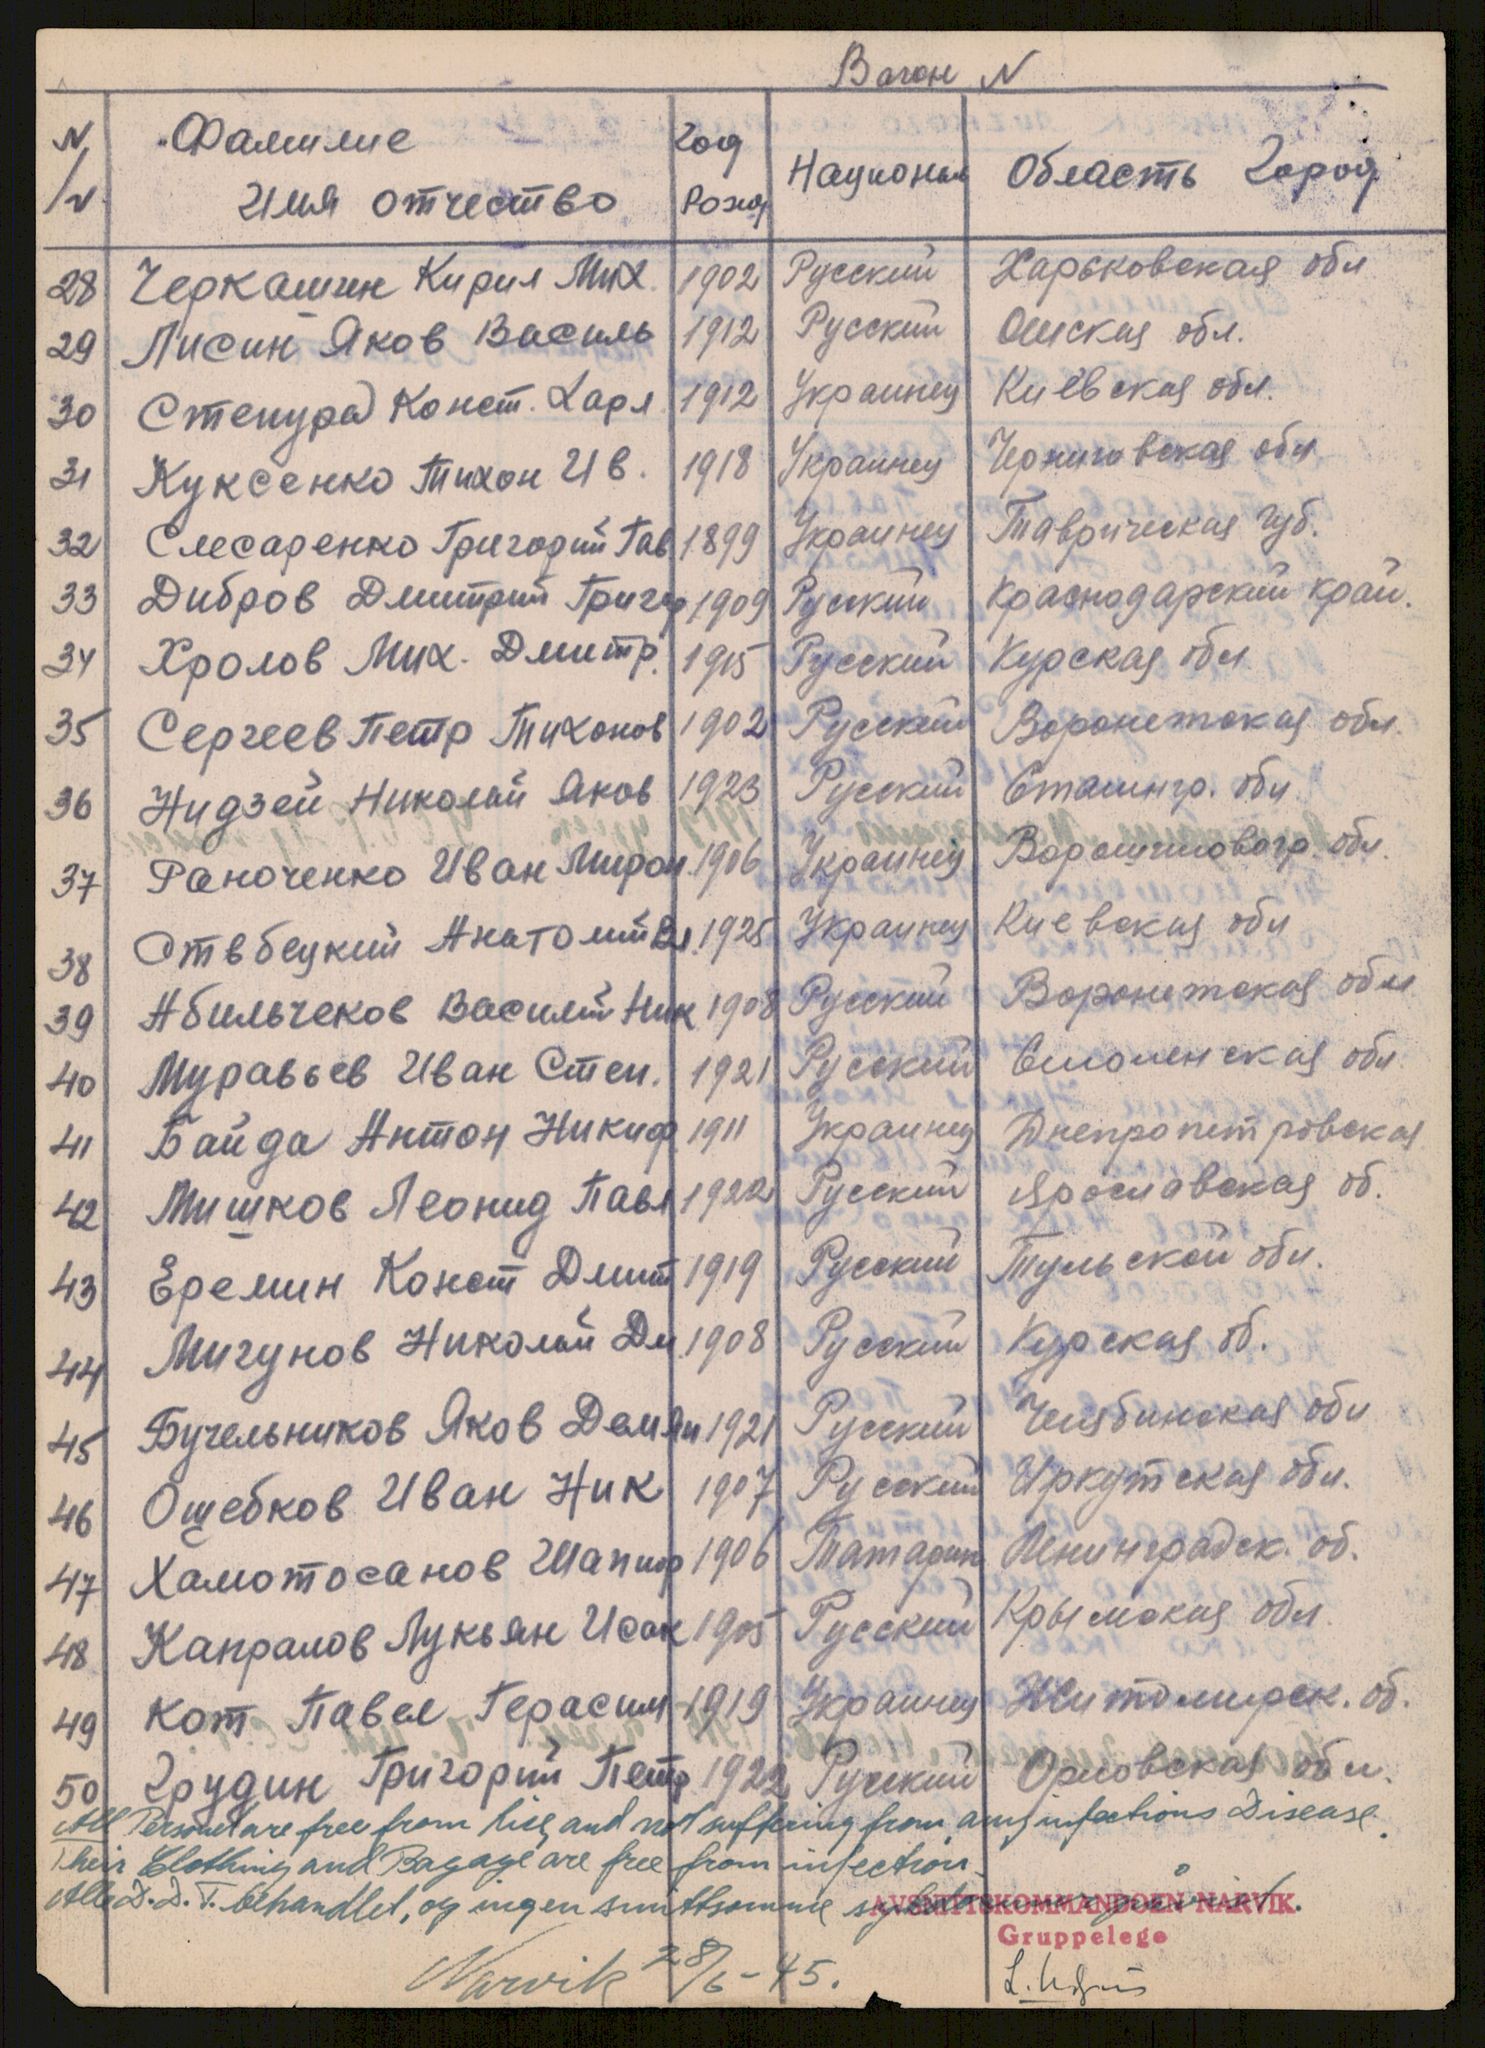 Вагон N
N/N Фамилие Имя отчество Год Рожд Национал Область Город
28 Черкашин Кирил Мих. 1902 Русский Харьковская обл
29 Лисин Яков Василь 1912 Русский Омская обл.
30 Степура Конст. Харл. 1912 Украинец Киевская обл.
31 Куксенко Тихон Ив. 1918 Украинец Черниговская обл
32 Слесаренко Григорий Гав 1899 Украинец Таврическая Губ.
33 Дибров Дмитрий Григор 1909 Русский Краснодарский край.
34 Хролов Мих. Дмитр. 1915 Русский Курская обл
35 Сергеев Петр Тихонов 1902 Русский Воронежская обл.
36 Нидзей Николай Яков 1923 Русский Сталингр. обл
37 Раноченко Иван Мирон. 1906 Украинец Ворошиловогр. обл.
38 Ствбецкий Анатолий Вл. 1925 Украинец Киевская обл
39 Абильчеков Василий Ник 1908 Русский Воронежская обл
40 Муравьев Иван Степ. 1921 Русский Смоленская обл
41 Байда Антон Никиф. 1911 Украинец Днепропетровская
42 Мишков Леонид Павл 1922 Русский Ярославская об.
43 Еремин Конст Дмит 1919 Русский Тульской обл.
44 Мигунов Николай Дм. 1908 Русский Курская об.
45 Бучельников Яков Демян 1921 Русский Челябинская обл
46 Ощебков Иван Ник 1907 Русский Иркутская обл.
47 Хамотосанов Шапир 1906 Татарин Ленинградск. об.
48 Капралов Лукьян Исак 1905 Русский Крымская обл
49 Кот Павел Герасим 1919 Украинец Житомирск. об.
50 Грудин Григорий Петр. 1922 Русский Орловская обл.
All Personel are free from lice, and not suffering from any infections Disease.
Their Clothing and Bagage are free from infection.
Alle D.D.T. behandlet, og ingen smittsomme
AVSNITTSKOMMANDOEN NARVIK.
Gruppelege
Narvik 28/6-45.